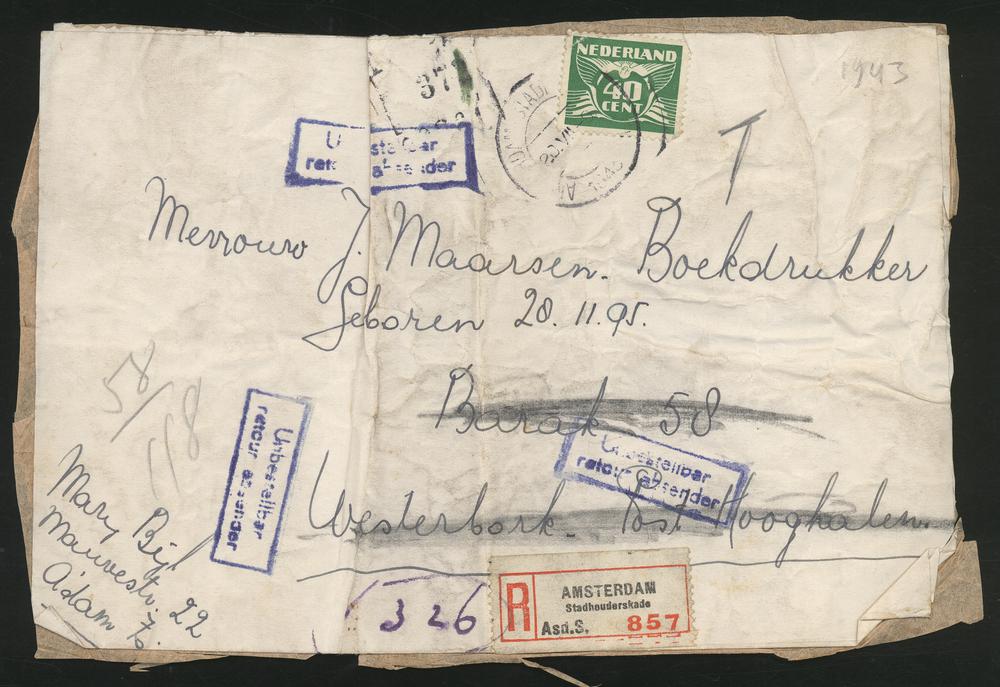 1943
NEDERLAND
40
CENT
37
Unbestellbar
retour absender
T
Mevrouw J. Maarsen. Boekdrukker
Geboren 28.11.95.
Barak 58
Westerbork. Post Hooghalen.
58/
Unbestellbar
retour absender
Unbestellbar
retour absender
Mary Bijl
Mauvestr. 22
A'dam Z.
326
R
AMSTERDAM
Stadhouderskade
Asd.S. 857